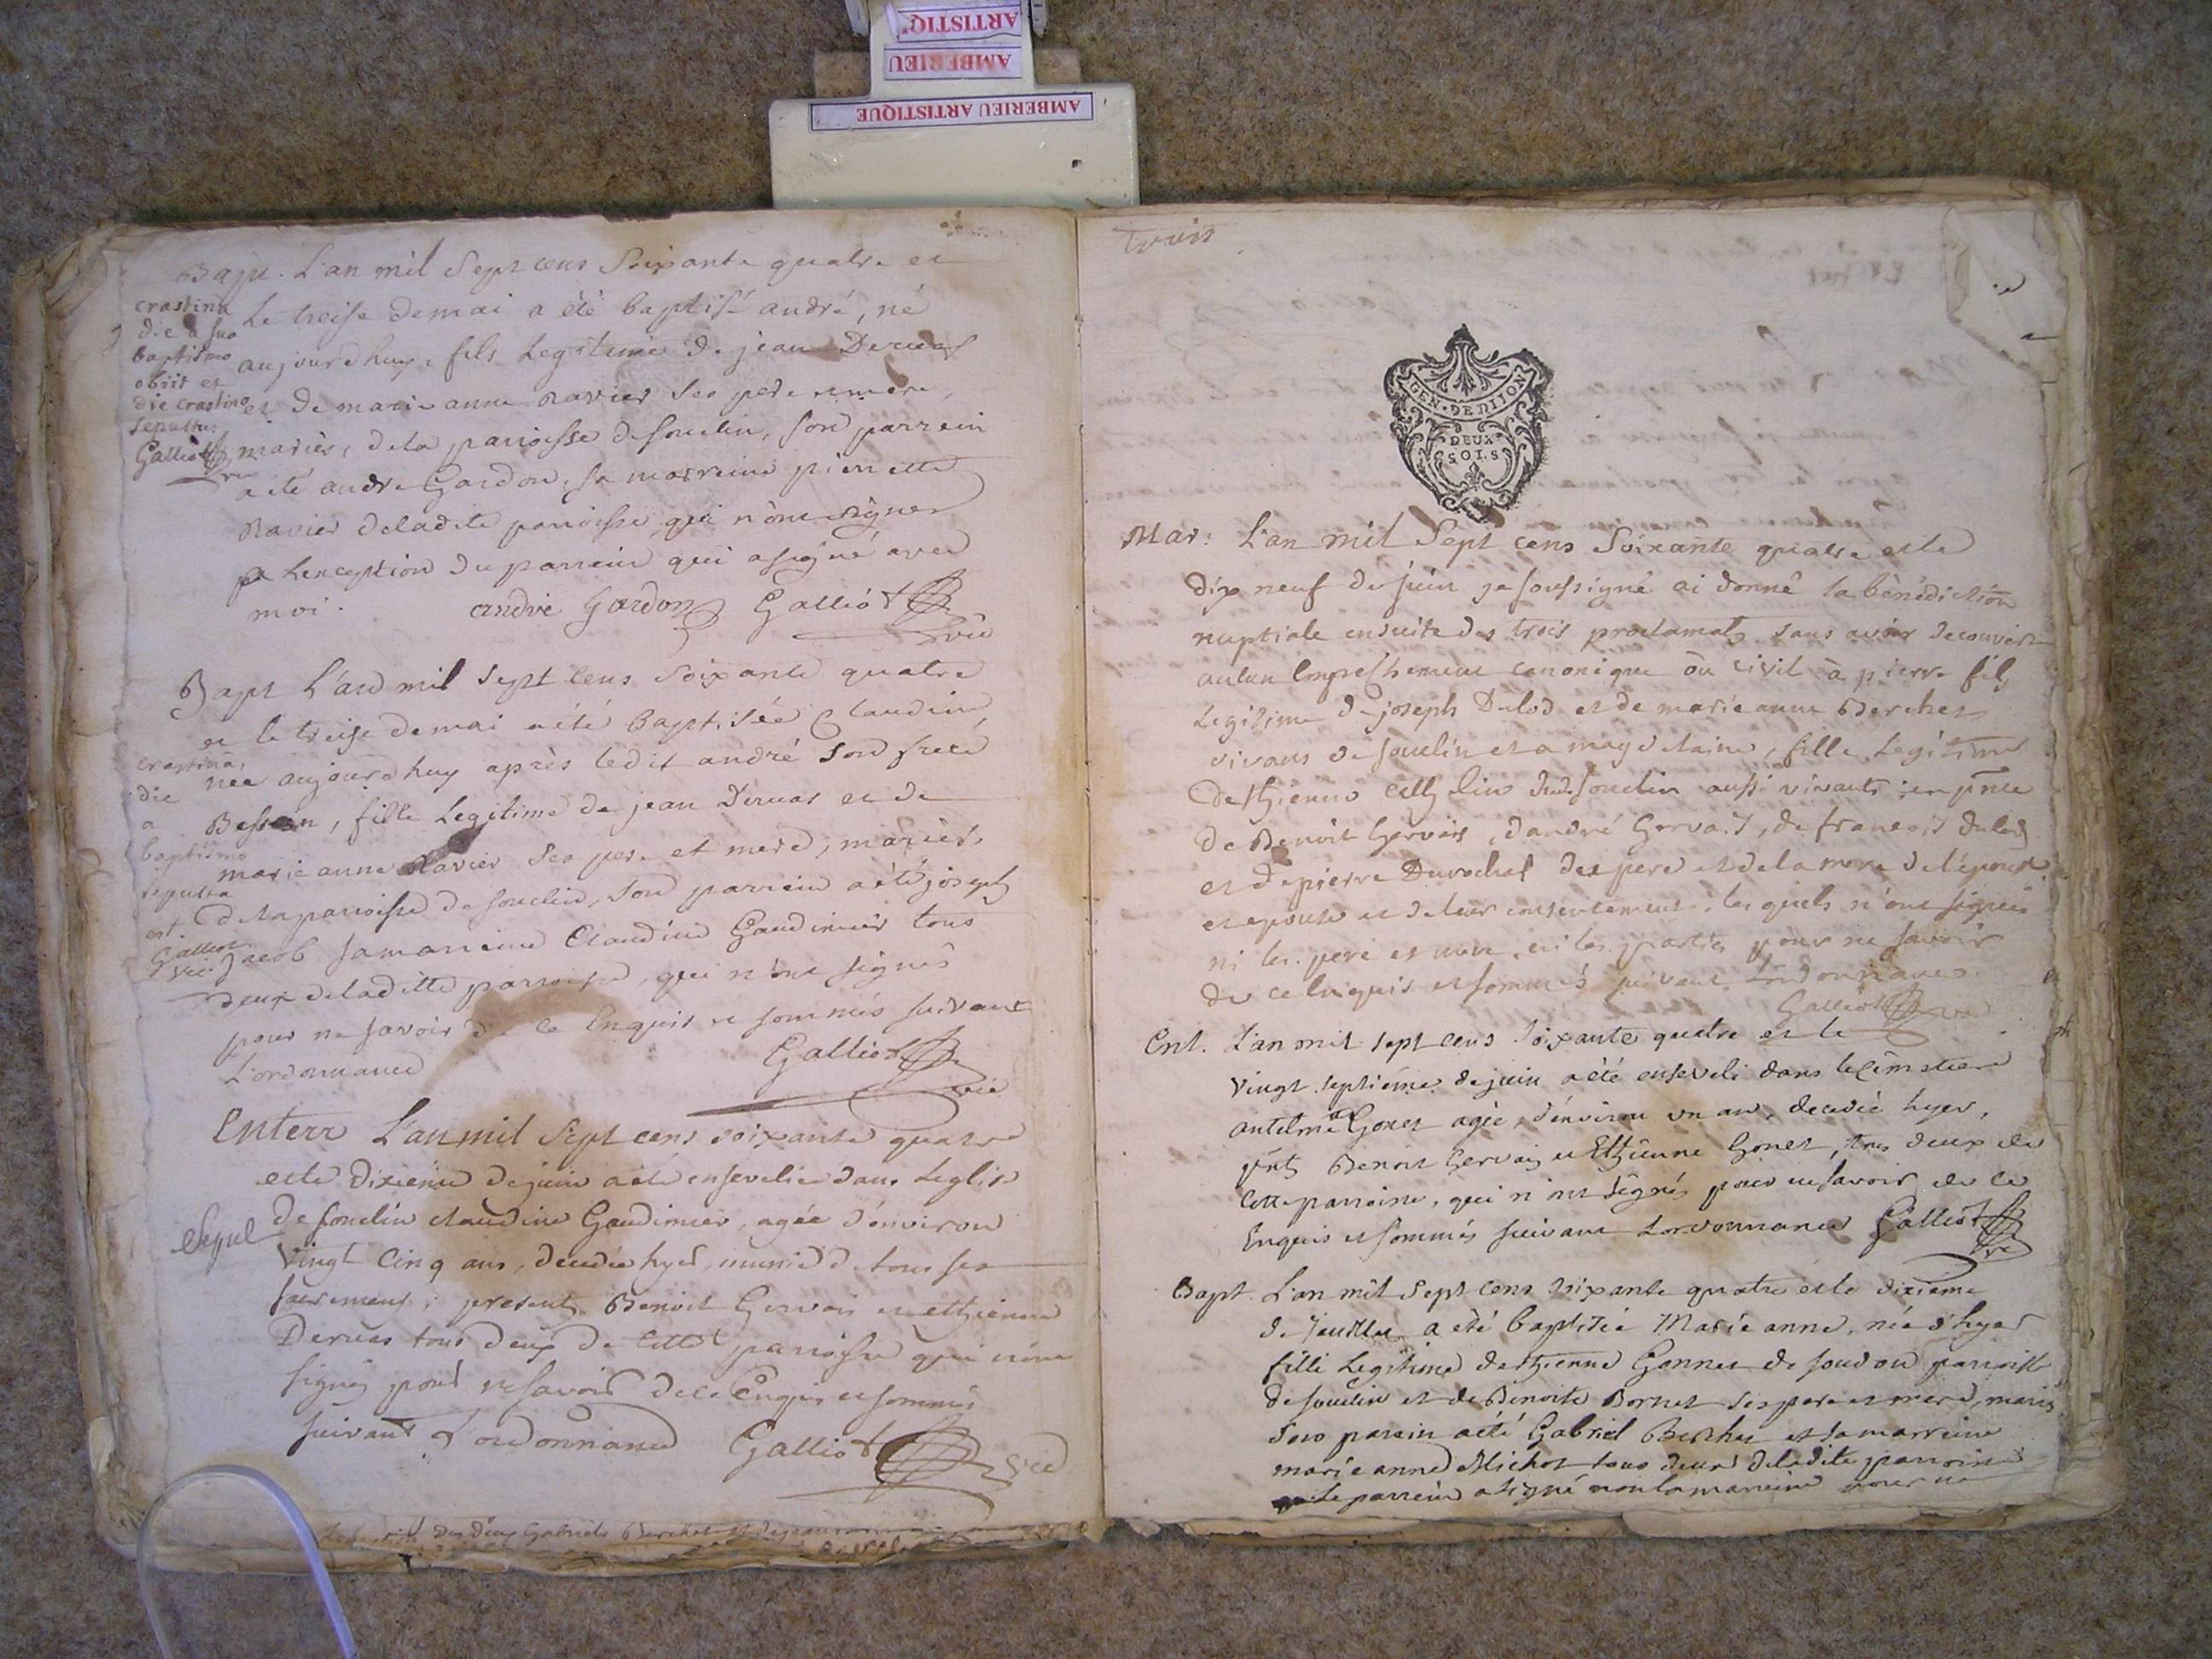 ARTISTIQ
AMBERIEU
AMBERIEU ARTISTIQUE
Bapt. L'an mil Sept cens Soixante quatre et
Le treise demai a été baptisé andré, né
aujourdhuy, fils Legitime de jean Dervas
et de marie anne Ravier ses pere et mere,
mariés, dela parroisse desouclin, son parrein
a été andre Gardon, sa marreine pierrette
Ravier deladite parroisse, qui n'ont signer
a Lexception du parrein qui asigné avec
moi. andré Gardon Galliot
vic
crastina
die a suo
baptismo
obiit et
die crastino
sepultus
Galliot
Bapt L'an mil Sept cens soixante quatre
et le treise demai a été baptisée Claudine
née aujourdhuy après ledit andré son frere
Besson, fille Legitime de jean Dervas et de
marie anne Ravier ses pere et mere, mariés,
delaparroisse de souclin, son parrein a été joseph
Jacob samarreine Claudine Gaudimier tous
deux deladitte parroisse, qui n'ont signés
pour ne savoir de ce Enquis et sommés suivant
L'ordonnance Galliot
vic
crastina
die
a
baptismo
sepulta
est.
Galliot
vic
Enterr L'an mil Sept cens soixante quatre
et le dixieme dejuin a été ensevelie dans Leglise
desouclin claudine Gaudimier, agée d'environ
vingt cinq ans, decedée hyer, munie de tous ses
sacremens, presents Benoit Gervais et ethienne
Dervas tous deux de cette parroisse qui n'ont
signés pour ne savoir dece Enquis et sommés
suivant L'ordonnance Galliot vic
Sepul
des deux Gabriels Berchet
trois
GEN. DE DIJON
DEUX
SOLS
Mar: L'an mil Sept cens Soixante quatre et le
dix neuf de juin je soussigné ai donné la bénédiction
nuptiale ensuite des trois proclamats sans avoir decouvert
aucun Empeshement canonique ou civil à pierre fils
Legitime de joseph Dulod et de marie anne Berchet
vivans de souclin et a magdelaine, fille Legitime
desthienne dud. souclin aussi vivants; en pnce
de Benoit Gervais, d'andré Gervais, de francois dulod
et depierre Durochat des pere et dela mere de lépoux
et epouse et de leur consentement, les quels n'ont signés
ni les pere et mere, ni les parties pour ne savoir
de ce Enquis et sommés suivant Lordonnance.
Galliot
Ent. L'an mil sept cens soixante quatre et le
vingt septiéme dejuin a été enseveli dans le cimetiere
antelme Gonet agée, d'environ un an, decedée hyer,
pnts Benoit Gervais et Ethienne Gonet, tous deux de
cette parroisse, qui n'ont signés pour ne savoir de ce
Enquis et sommés suivant Lordonnance Galliot
Bapt. L'an mil Sept cens soixante quatre et le dixieme
de Jeuillet a été baptisée Marie anne, née d'hyer
fille Legitime desthienne Gonnet de soudon parroisse
de souclin et de Benoite Bornet ses pere et mere, mariés
son parein a été Gabriel Berchet et sa marreine
marie anne Michot tous deux deladite parroisse
le parrein a signé non la marreine pour ne